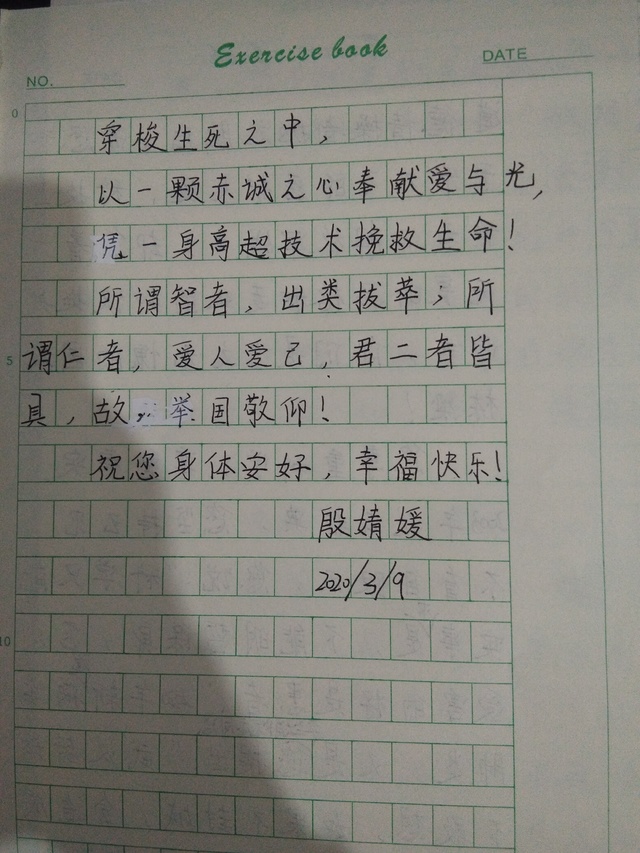 Exercise book
NO. DATE
0
穿梭生死之中，
以一颗赤诚之心奉献爱与光，
凭一身高超技术挽救生命！
所谓智者，出类拔萃；所
5
谓仁者，爱人爱己，君二者皆
具，故，举国敬仰！
祝您身体安好，幸福快乐！
殷婧媛
2020/3/9
10